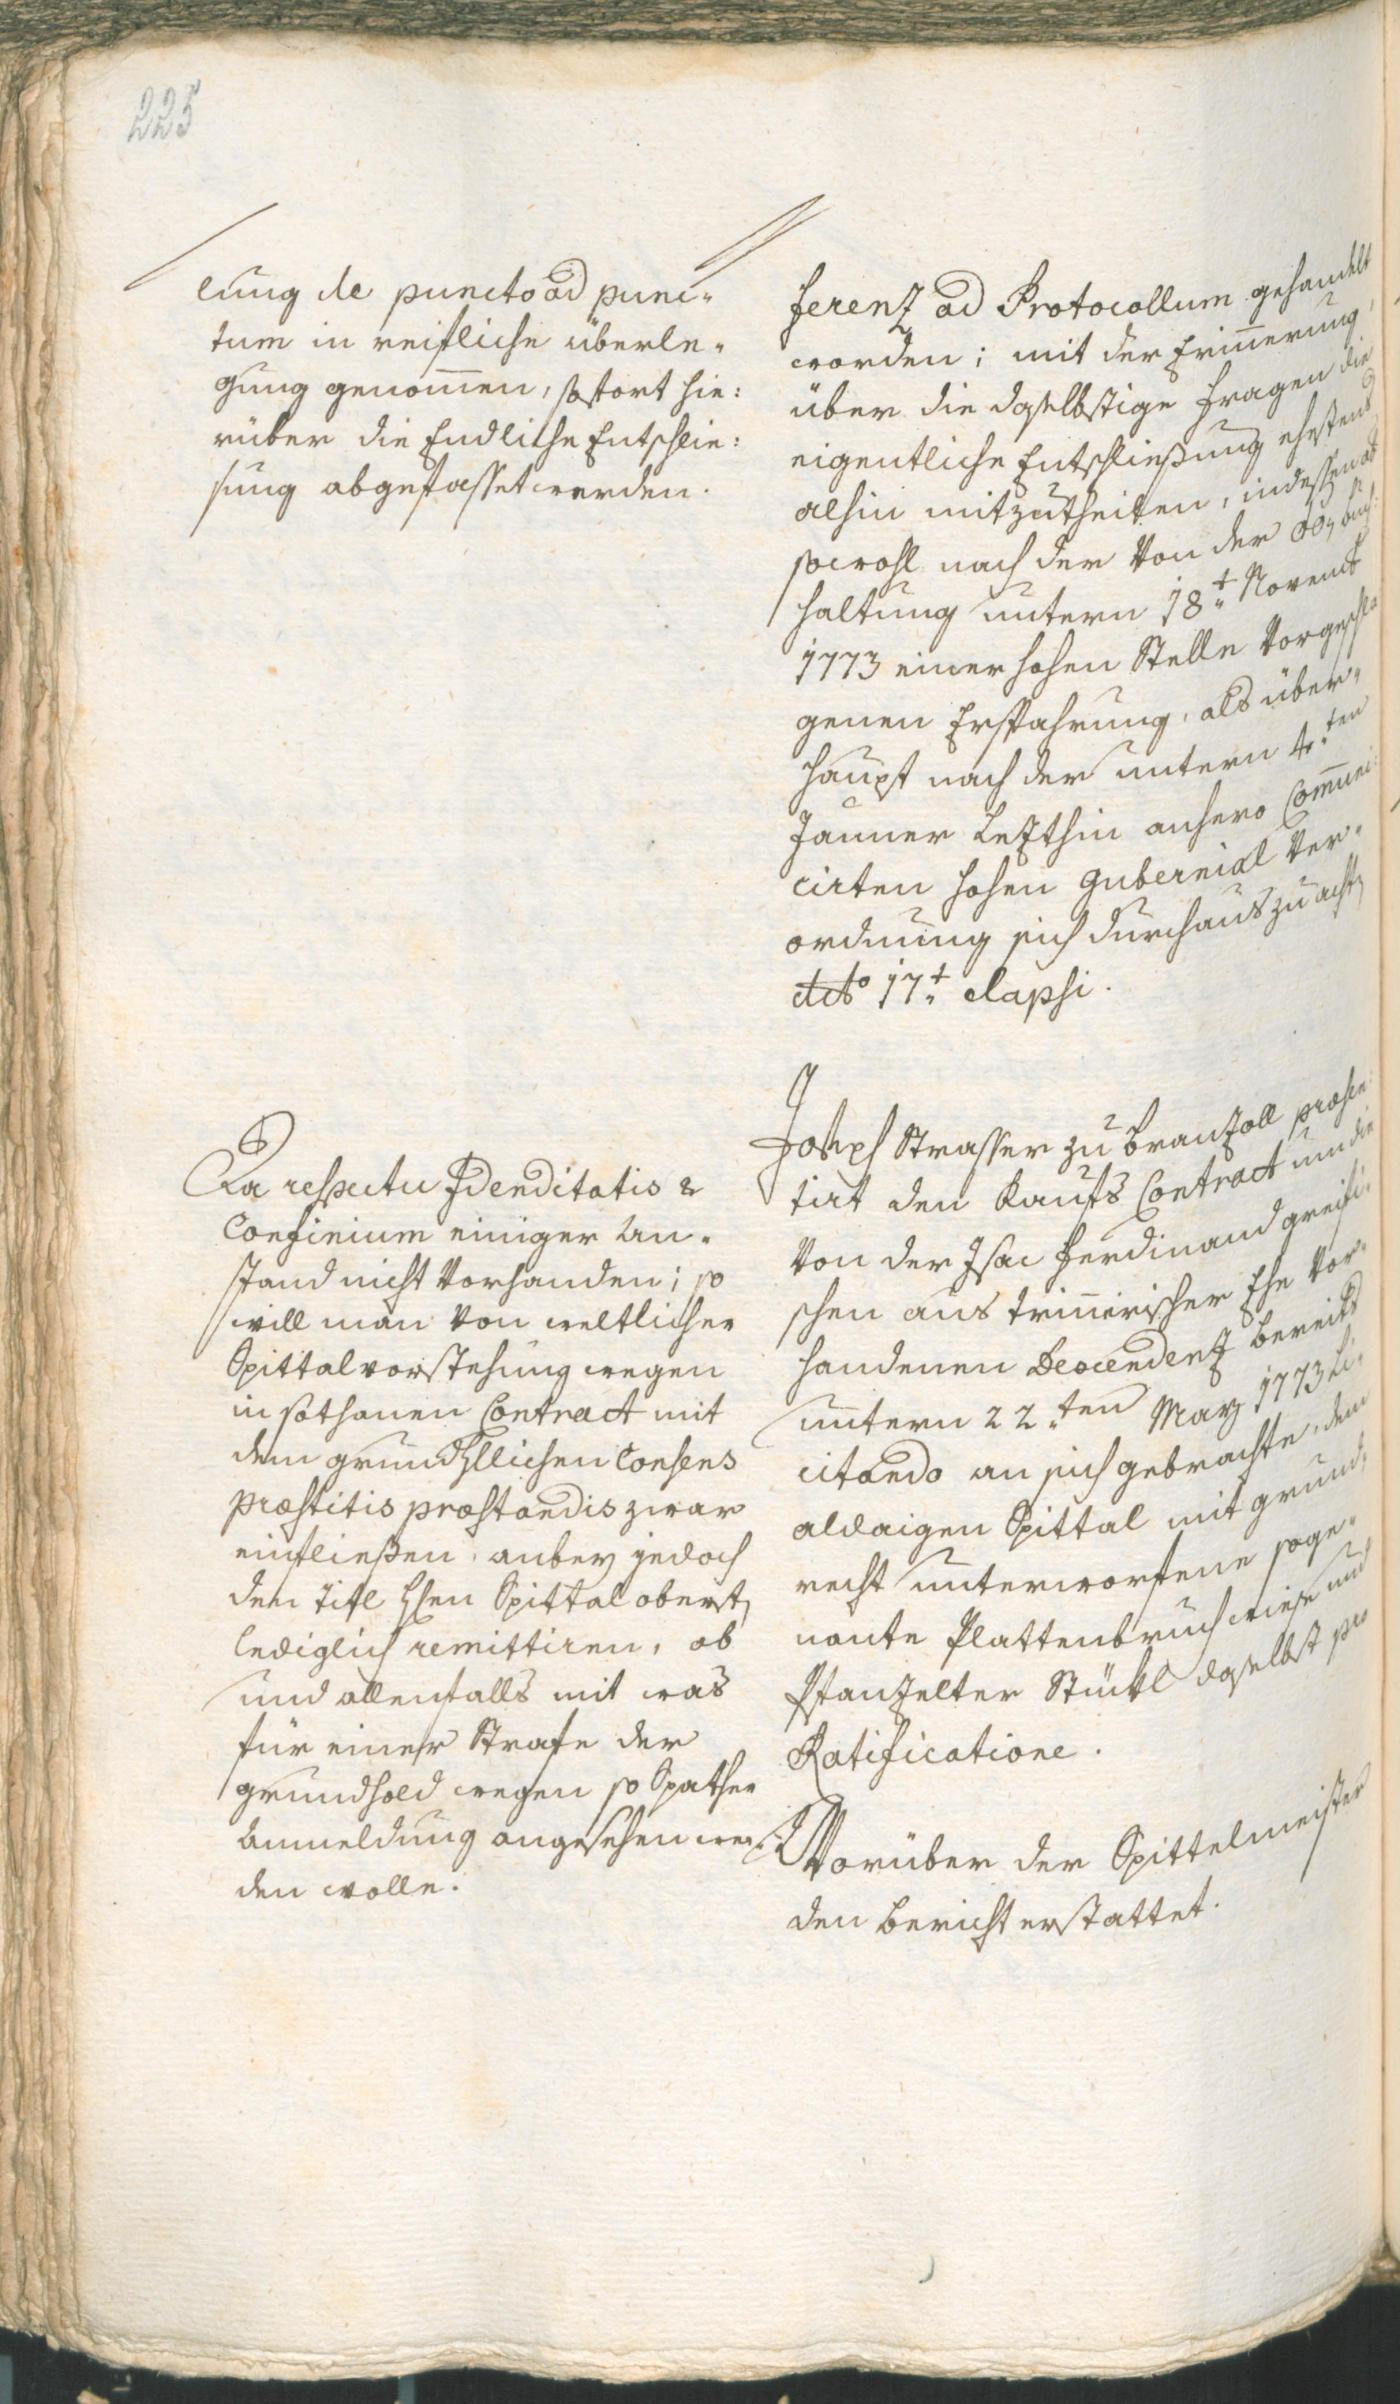 225
lung de puncto ad punc-
tum in reifliche überle-
gung genom̄en, sofort hie:
rüber die Endliche Entschlie:
sung abgefasset werden.
ferenz ad Protocollum gehandelt
worden; mit der Erin̄erung,
über die daselbstige Fragen die
eigentliche Entschließung ehestens
alhin mitzutheilen, indessen ab
sowohl nach der von der
haltung untern 18t Novemb
1773 einer hohen Stelle Vorgeschla
genen Erfahrung, als über-
haupt nach der untern 4.ten
Janner Lezthin anhero Com̄uni:
cirten hohen Gubernial Ver-
ordnung sich durchaus zu acht
dcto 17t elapsi.
Da respectu Idenditatis &
Confinium einiger An-
stand nicht Vorhanden; so
will man von weltlicher
Spittalvorstehung wegen
in sothanen Contract mit
dem grundhllichen Consens
præstitis præstandis zwar
einfließen, anbey jedoch
den Titl Hhen Spittal oberst
lediglich remittiren, ob
und allenfalls mit was
für einer Strafe der
grundhold wegen so Spather
Anmeldung angesehen wer-
den wolle.
Joseph Strasser zu Branzoll præsen
tirt den Kaufs Contract um die
Von der Isac Ferdinand greifi-
schen aus trin̄erischer Ehe Vor-
handenen Descendenz bereits
untern 22.ten Marz 1773 Li-
citando an sich gebrachte, dem
aldaigen Spittal mit grund
recht unterworfene soge-
nante Plattenbruch wiese und
Pfanzelter Stückl daselbst pro
Ratificatione.
Worüber der Spittelmeister
den bericht erstattet.